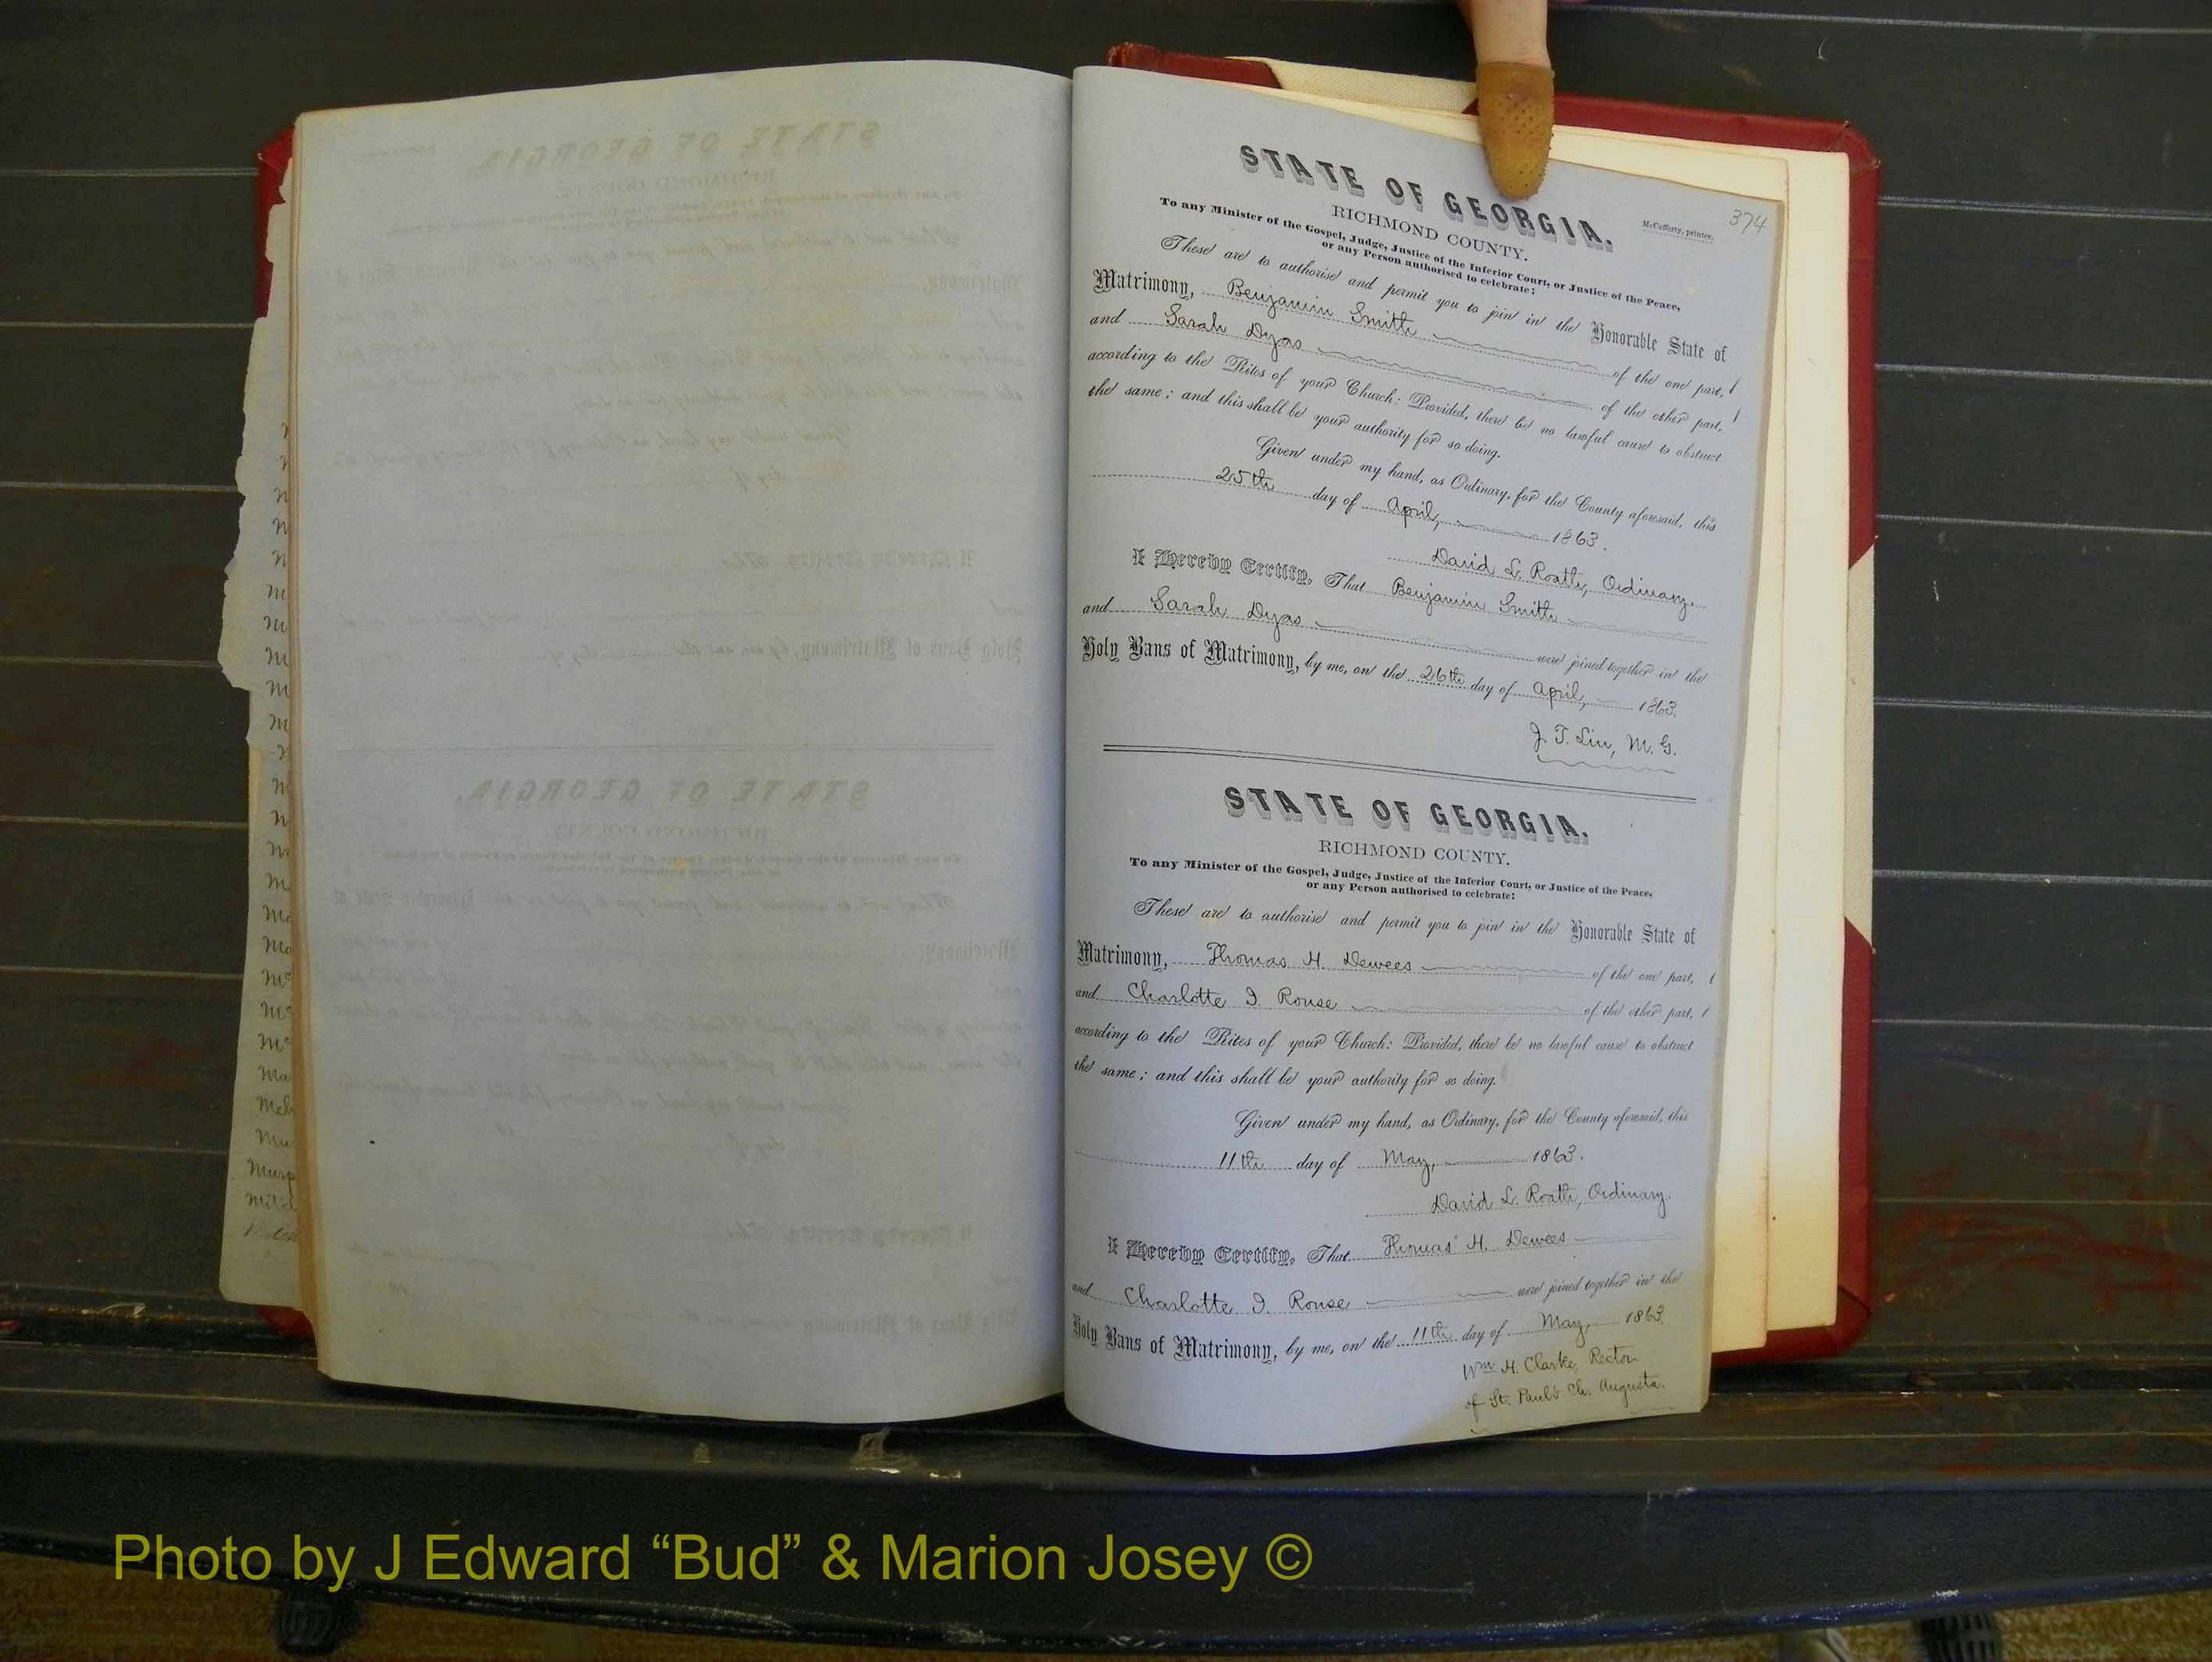 374
McCafferty, printer.
STATE OF GEORGIA.
RICHMOND COUNTY.
To any Minister of the Gospel, Judge, Justice of the Inferior Court, or Justice of the Peace,
or any Person authorised to celebrate:
These are to authorise and permit you to join in the Honorable State of
Matrimony, Benjamin Smith of the one part,
and Sarah Dyas of the other part,
according to the Rites of your Church: Provided, there be no lawful cause to obstruct
the same; and this shall be your authority for so doing.
Given under my hand, as Ordinary, for the County aforesaid, this
25th day of April, 1863.
David L. Roath, Ordinary.
I Hereby Certify, That Benjamin Smith
and Sarah Dyas were joined together in the
Holy Bans of Matrimony, by me, on the 26th day of April, 1863.
J. T. Lin, M. G.
STATE OF GEORGIA.
RICHMOND COUNTY.
To any Minister of the Gospel, Judge, Justice of the Inferior Court, or Justice of the Peace,
or any Person authorised to celebrate:
These are to authorise and permit you to join in the Honorable State of
Matrimony, Thomas H. Dewees of the one part,
and Charlotte I. Rouse of the other part,
according to the Rites of your Church: Provided, there be no lawful cause to obstruct
the same; and this shall be your authority for so doing.
Given under my hand, as Ordinary, for the County aforesaid, this
11th day of May, 1863.
David L. Roath, Ordinary.
I Hereby Certify, That Thomas H. Dewees
and Charlotte I. Rouse were joined together in the
Holy Bans of Matrimony, by me, on the 11th day of May, 1863.
Wm H. Clarke, Rector
of St. Paul's Ch. Augusta.
Photo by J Edward “Bud” & Marion Josey ©